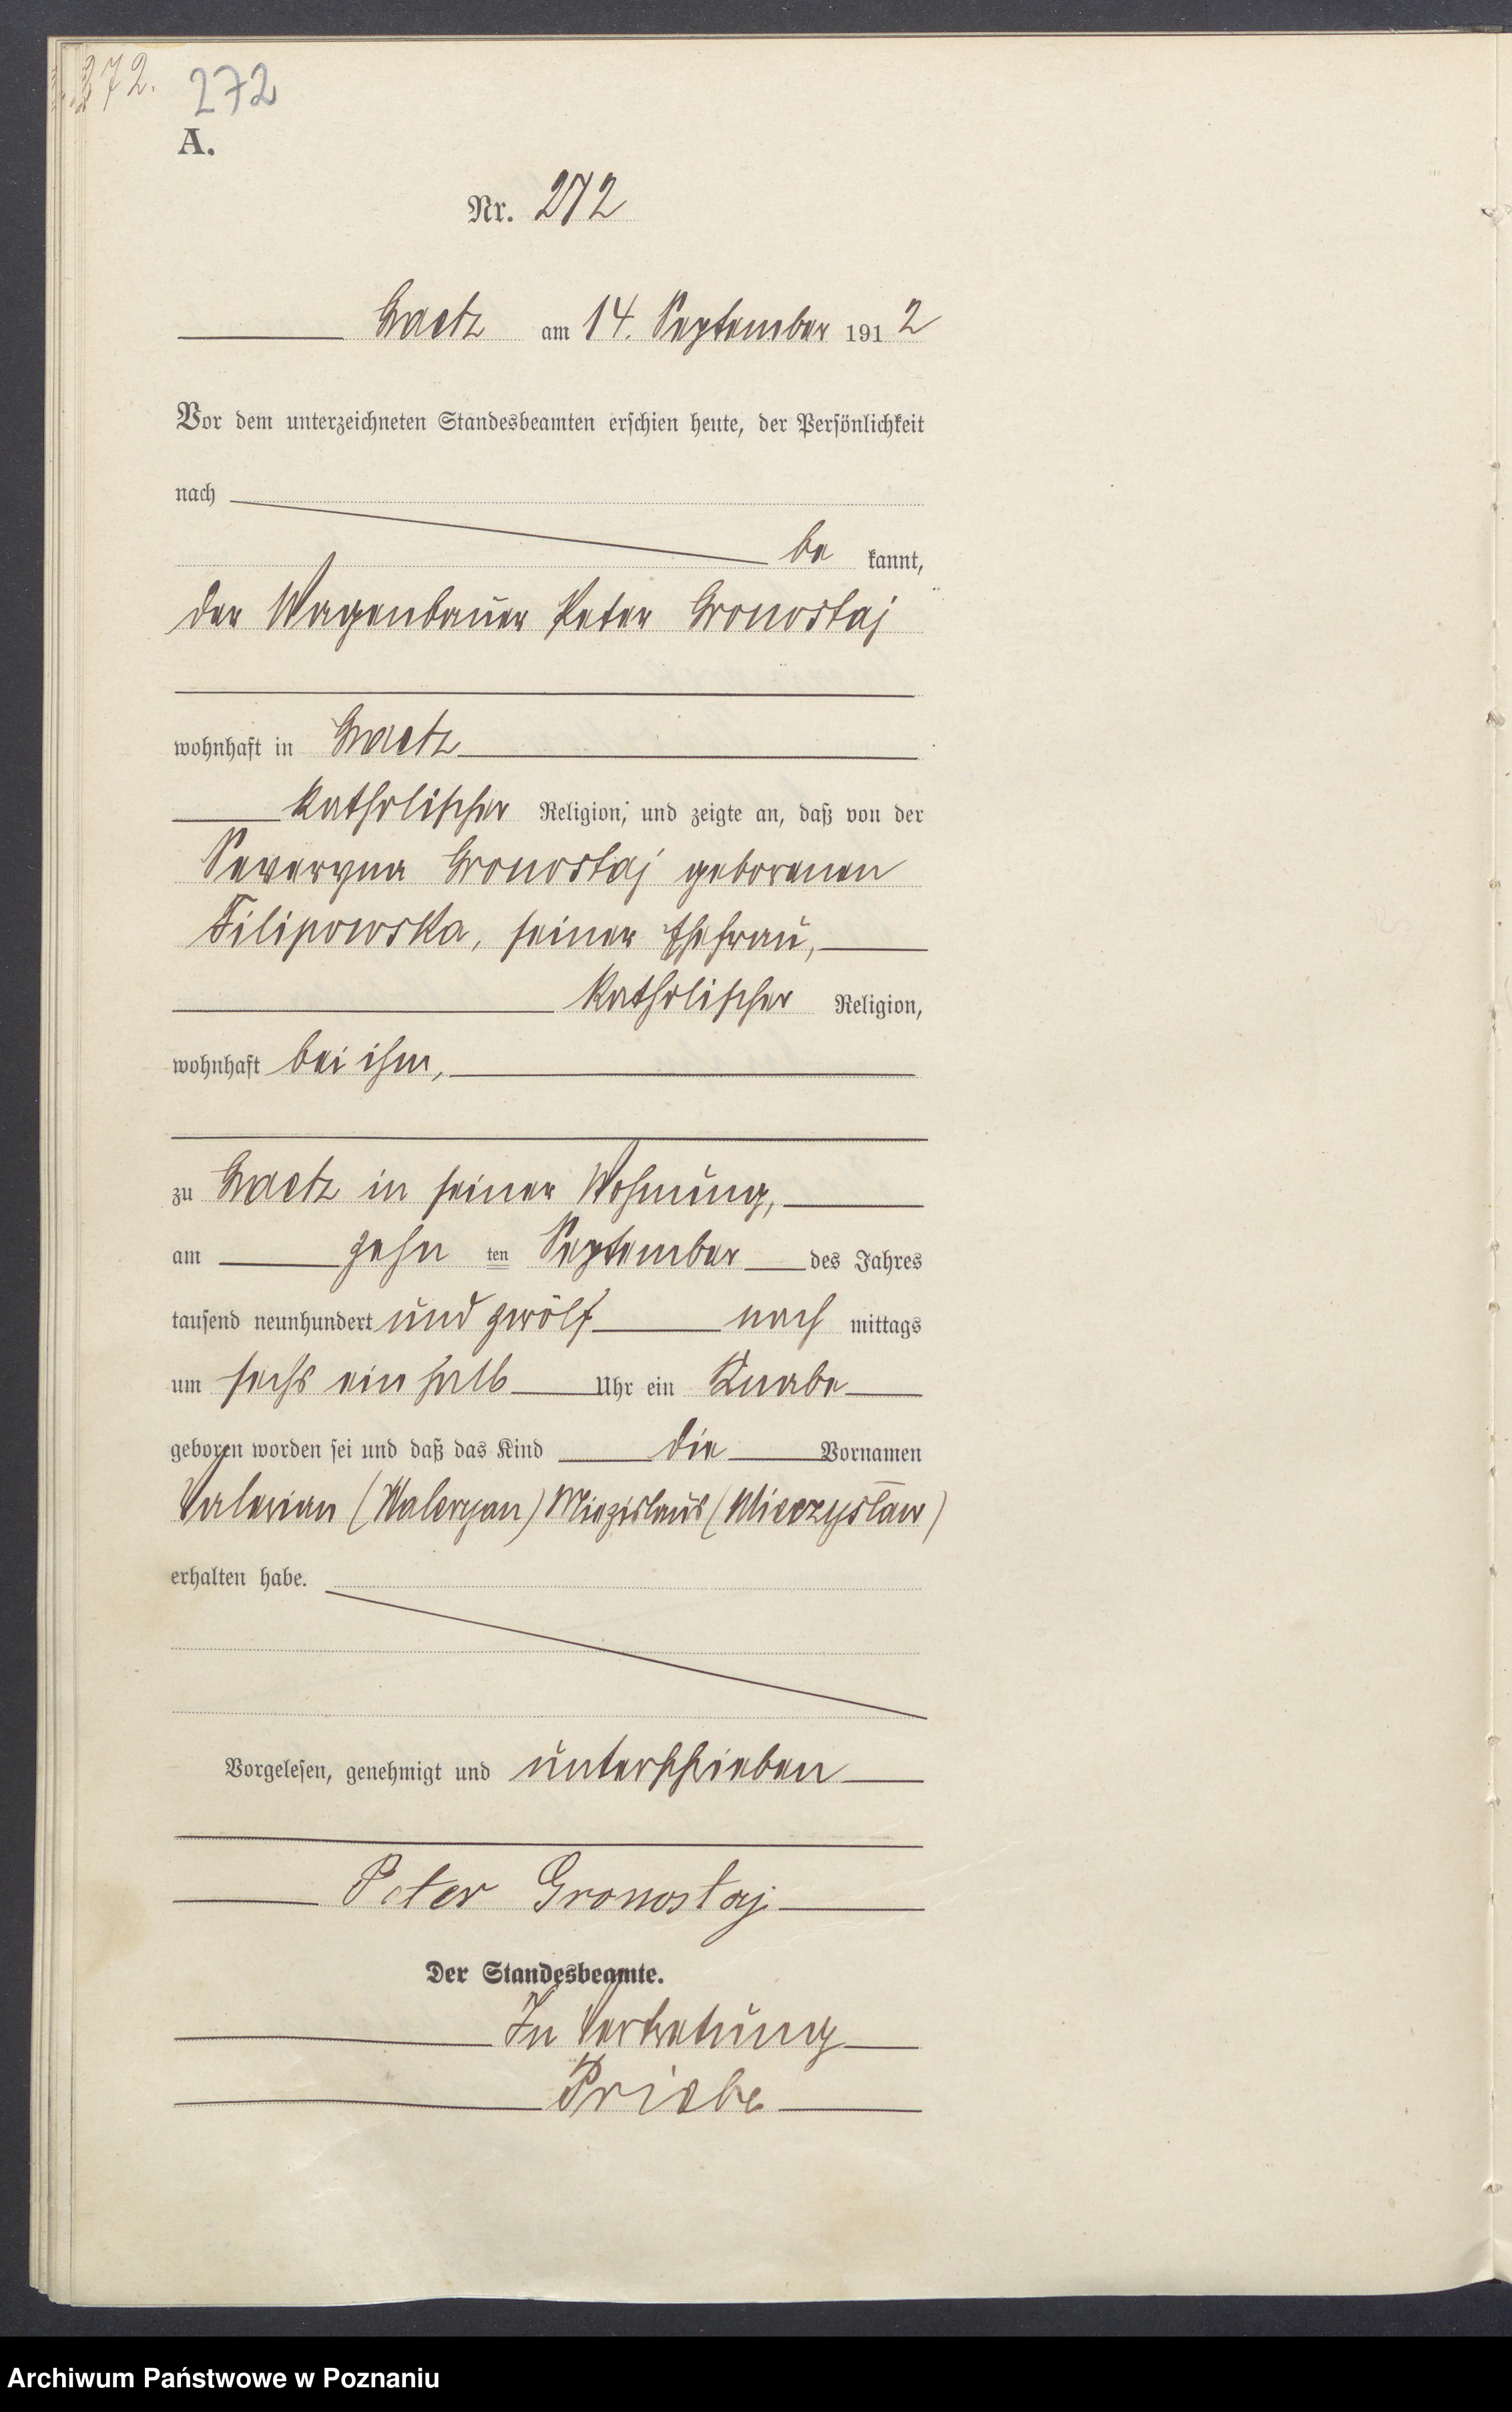 272.
272
A.
Nr. 272
Graetz am 14. September 1912
Vor dem unterzeichneten Standesbeamten erschien heute, der Persönlichkeit
nach
be kannt,
der Wagenbauer Peter Gronostaj
wohnhaft in Graetz
katholischer Religion, und zeigte an, daß von der
Seweryna Gronostaj geborenen
Filipowska, seiner Ehefrau,
katholischer Religion,
wohnhaft bei ihm,
zu Graetz in seiner Wohnung,
am zehn ten September des Jahres
tausend neunhundert und zwölf nach mittags
um sechs ein halb Uhr ein Knabe
geboren worden sei und daß das Kind die Vornamen
Valerian (Waleryan) Miezislaus (Mieczysław)
erhalten habe.
Vorgelesen, genehmigt und unterschrieben
Peter Gronostaj
Der Standesbeamte.
In Vertretung
Priebe
Archiwum Państwowe w Poznaniu